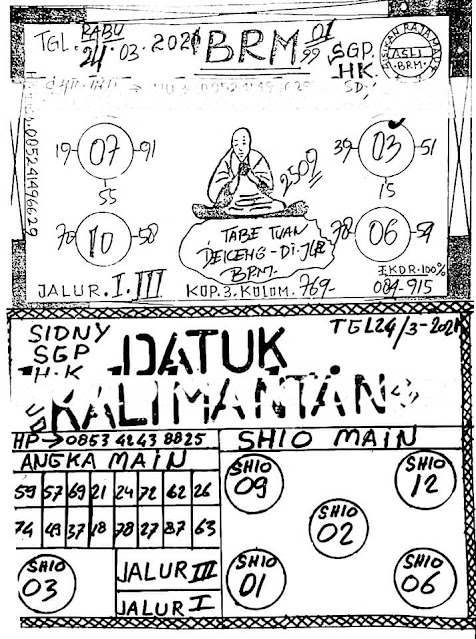 TGL. RABU
24.03.2021
BRM 01
99
SGP.
HK.
SD.
ASLI
BRM.
19 07 91
55
39 03 51
15
2509
70 10 58
78 06 54
TABE TUAN
DEICENG-DI-JLR
BRM.
JALUR.I.III
KOP.3.KOLOM.769
I.KOR.100%
084-915
SIDNY
SGP
H.K
DATUK
KALIMANTAN
HP→0853 4243 8825
SHIO MAIN
ANGKA MAIN
59 57 69 21 24 72 62 26
74 49 37 18 78 27 87 63
SHIO
09
SHIO
12
SHIO
02
SHIO
03
JALUR III
JALUR I
SHIO
01
SHIO
06